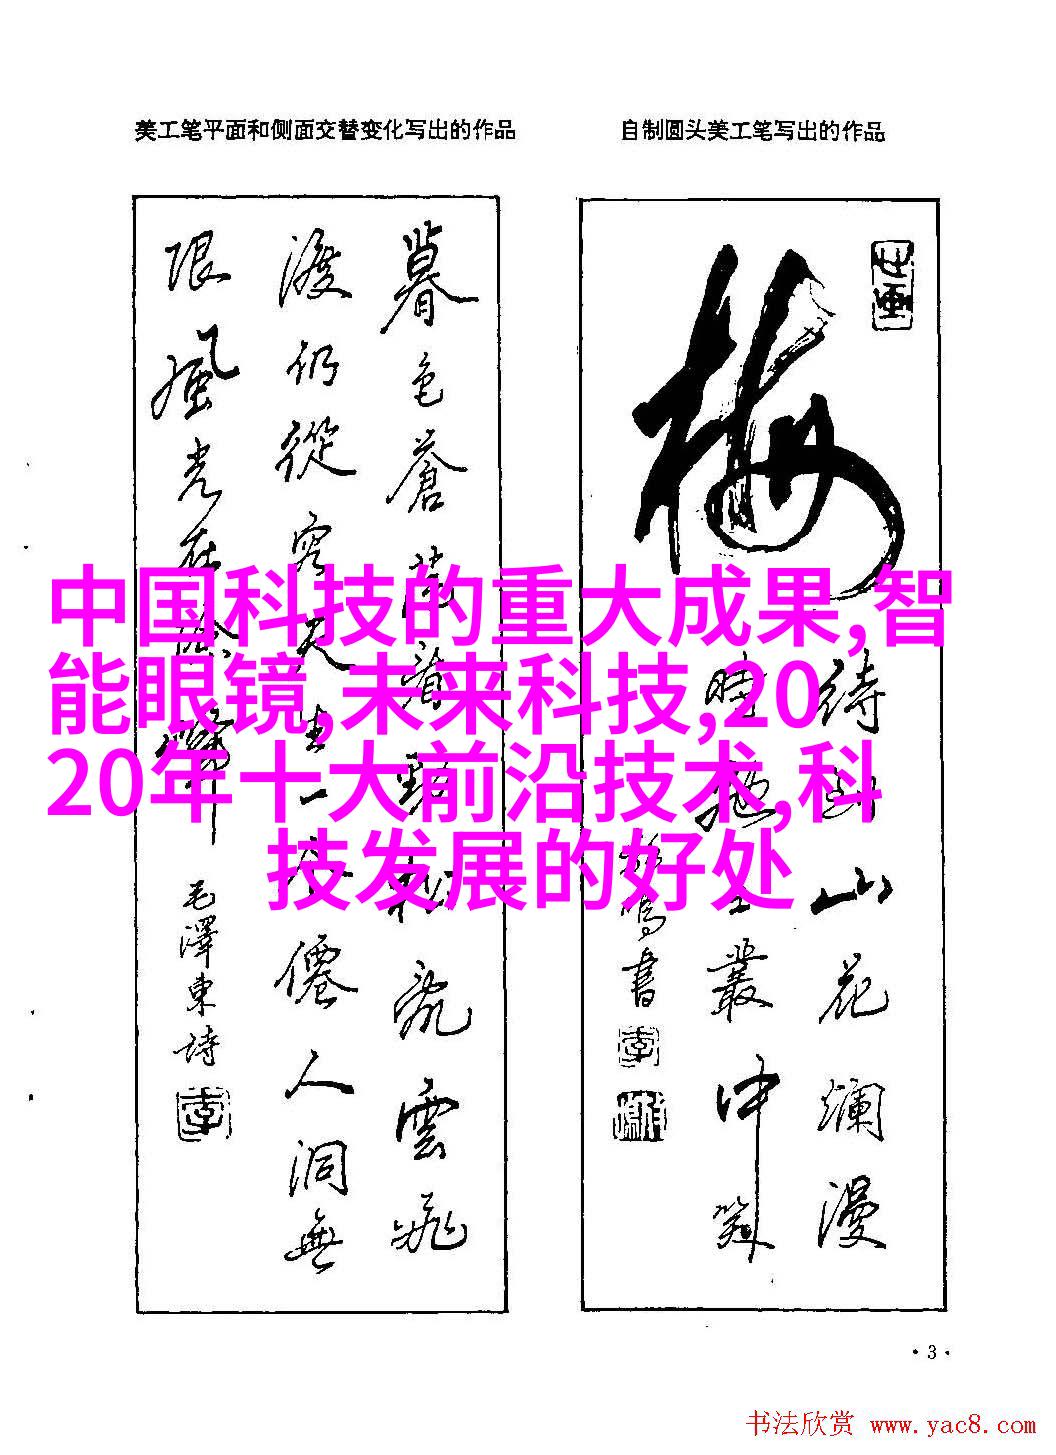 美工笔平面和侧面交替变化写出的作品
自制圆头美工笔写出的作品
暮色苍茫看劲松乱雲飛
渡仍從容天生一个僊人洞無
限風光在險峰
毛澤東詩
梅
待到山花爛漫
時她在叢中笑
中国科技的重大成果,智
能眼镜,未来科技,20
20年十大前沿技术,科
技发展的好处
·3·
书法欣赏 www.yac8.com